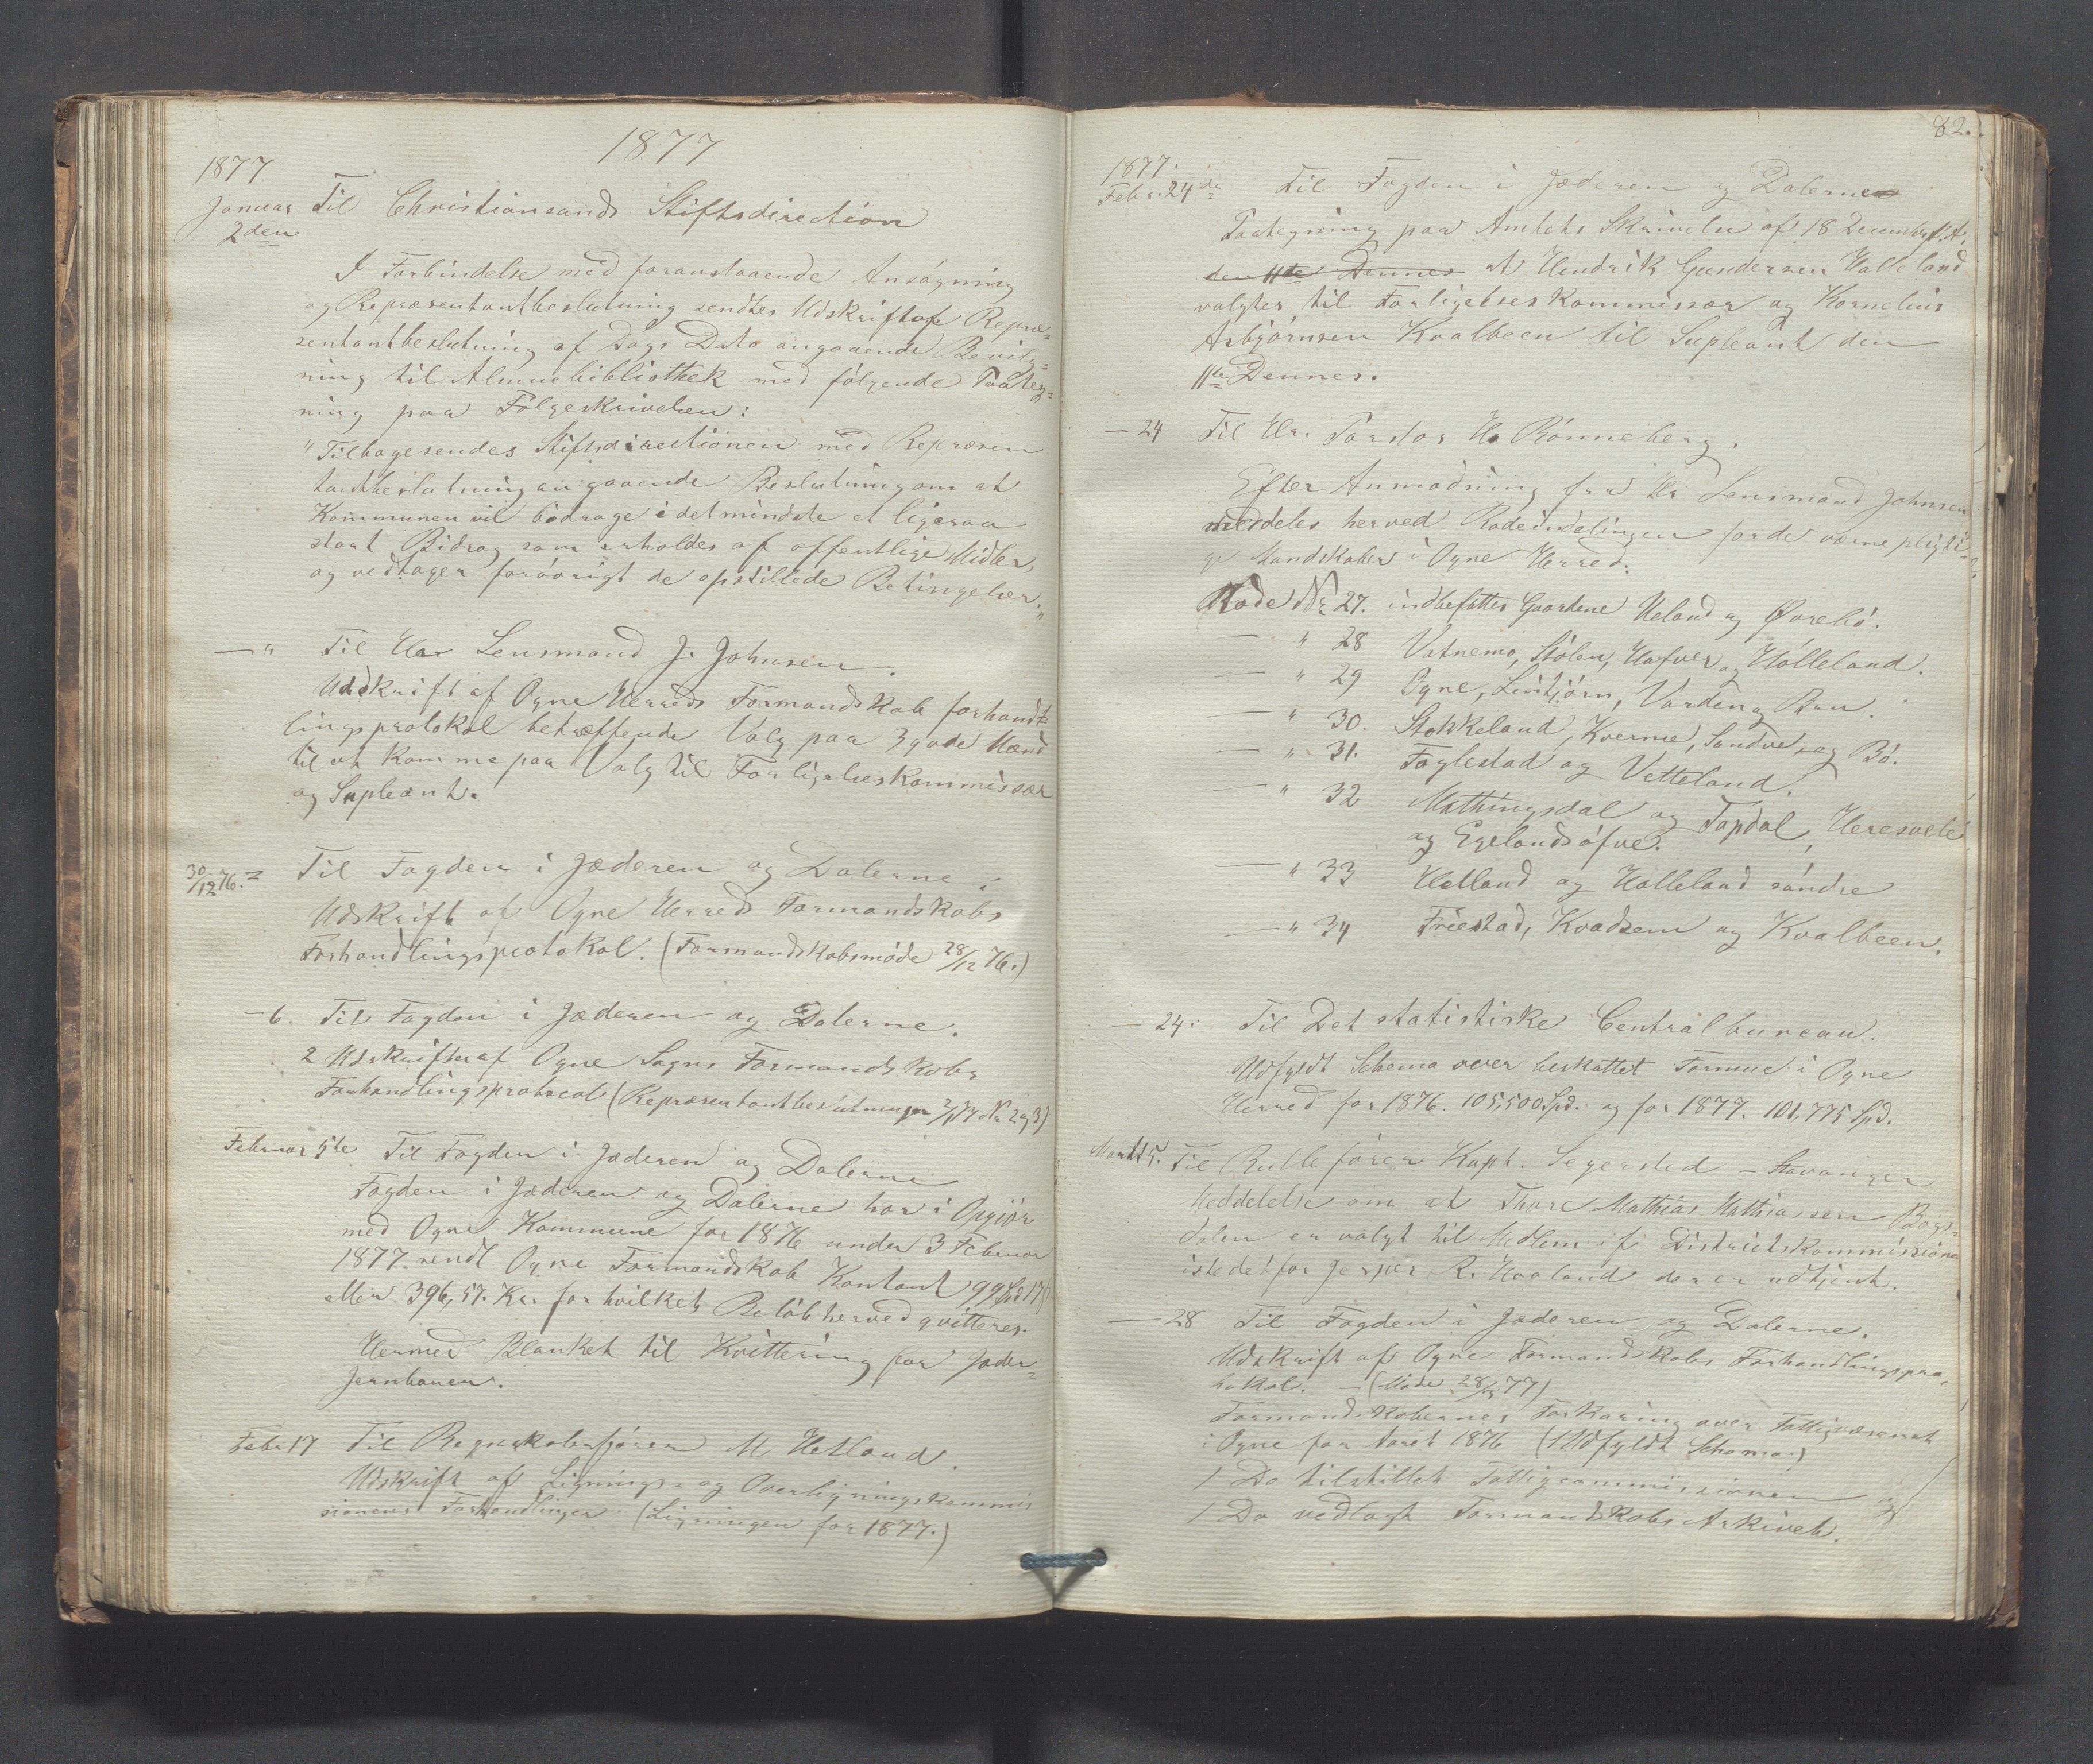 1877
1877
Januar Til Christiansands Stiftsdirection
2den
I Forbindelse med foranstaaende Ansøgning
og Repræsentantbeslutning sendtes Udskrift af Repræ-
sentantbeslutning af Dags Dato angaaende Bevilg-
ning til Almuebibliothek med følgende Paateg-
ning paa Følgeskrivelsen:
"Tilbagesendes Stiftsdirectionen med Repræsen
tantbeslutning angaaende Beslutning om at
Kommunen vil bidrage idetmindste et ligesaa
stort Bidrag som erholdes af offentlige Midler,
og vedtager forøvrigt de opstillede Betingelser."
— " Til Herr Lensmand J. Johnsen.
Udskrift af Ogne Herreds Formandskab forhand-
lingsprotokol betræffende Valg paa 3 gode Mænd
til at komme paa Valg til Forligelseskommissær
og Supleant.
30/12 76. Til Fogden i Jæderen og Dalerne.
Udskrift af Ogne Herreds Formandskabs
Forhandlingsprotokol. (Formandskabsmøde 28/12 76.)
- 6. Til Fogden i Jæderen og Dalerne.
2 Udskrifter af Ogne Sogns Formandskabs
Forhandlingsprotocol (Repræsentantbeslutninger 2/1 77 Nr 2 og 3)
Februar 5te Til Fogden i Jæderen og Dalerne
Fogden i Jæderen og Dalerne har i Opgjør
med Ogne Kommune for 1876 under 3 Februar
1877 sendt Ogne Formandskab Kontant 99 Spd 17
eller 396,57. Kr. for hvilket Beløb herved qvitteres.
Hermed Blanket til Kvittering for Jæder-
Jernbanen.
Febr 17 Til Regnskabsfører M Hetland.
Udskrift af Lignings- og Overligningskommis
sionens Forhandlinger (Ligningen for 1877.)
82.
1877.
Febr. 24de Til Fogden i Jæderen og Dalerne
Paategning paa Amtets Skrivelse af 18 December f. A,
den 11te Dennes At Hendrik Gundersen Halleland
valgtes til Forligelseskommissær og Kornelius
Asbjørnsen Kvalbeen til Supleant den
11te Dennes.
— 24 Til Hr. Pastor H. Rønneberg.
Efter Anmodning fra Hr Lensmand Johnsen
meddeles herved Rodeindelingen for de værnepligti-
ge Mandskaber i Ogne Herred:
Rode Nr 27. indbefatter Gaardene Ueland og Øvrebø.
— " 28 Vatnemo, Stølen, Hafver og Hølleland.
— " 29 Ogne, Lintjørn, Varden og Bru.
— " 30. Stokkeland, Kverme, Sandve og Bø.
— " 31. Foglestad og Vetteland.
— " 32 Mathingsdal og Topdal, Heresvele
og Egelandsøfve.
— " 33 Helland og Halleland søndre
— " 34 Friestad, Kvadsem og Kvalbeen.
— 24. Til Det statistiske Centralbureau.
Udfyldt Schema over beskattet Formue i Ogne
Herred for 1876. 105,500 Spd. og for 1877. 101,775 Spd.
Marts 5. Til Rullefører Kapt. Segersted – Stavanger
Meddelelse om at Thore Mathias Mathiassen Bøgs-
dalen er valgt til Medlem af Districtskommissionen
istedetfor Jesper R. Hvaland der er udtjent.
— 28 Til Fogden i Jæderen og Dalerne.
Udskrift af Ogne Formandskabs Forhandlingspro-
tokol. – (Møde 28/3 77)
Formandskabernes Forklaring over Fattigvæsenet
i Ogne for Aaret 1876 (Udfyldt Schema)
1 Do tilstillet Fattigcommissionen og
1 Do vedlagt Formandskabs Arkivet.